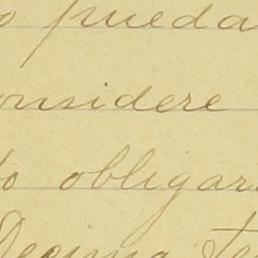 o pueda
onsidere
to obligar
Decima te